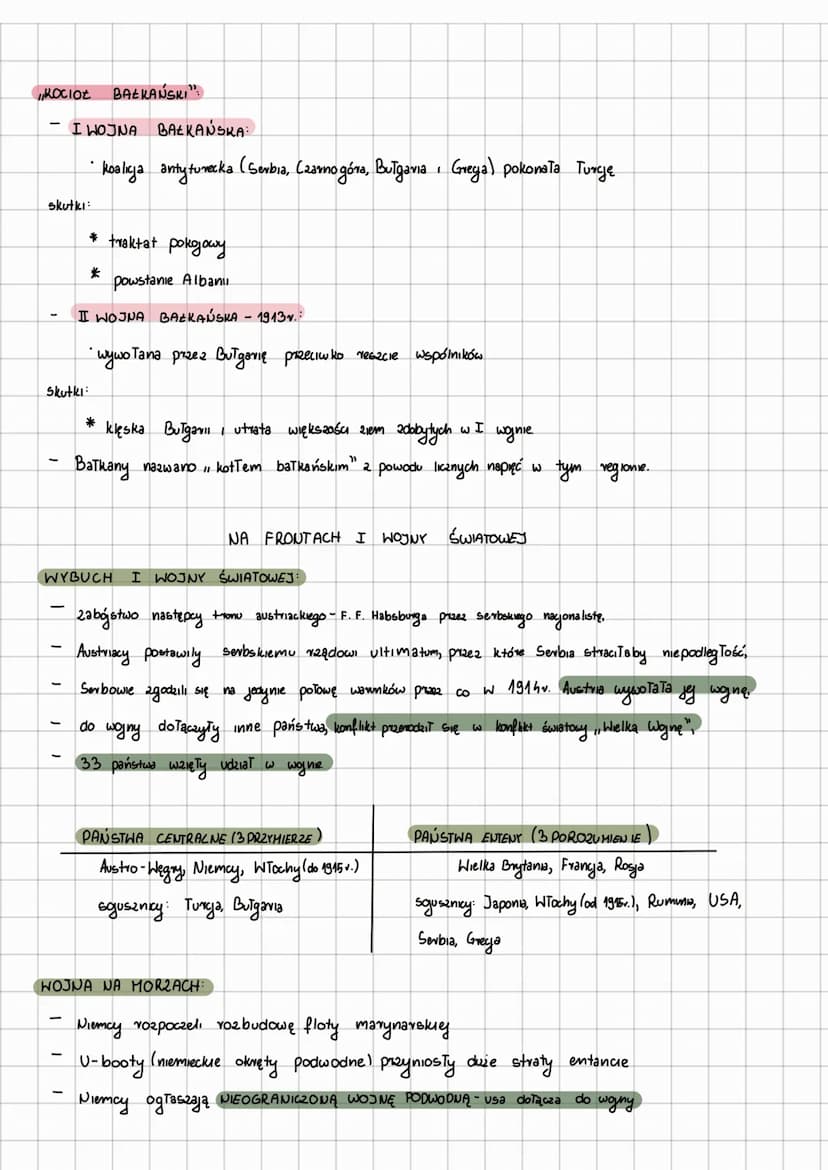 „KOCIOŁ BAŁKAŃSKI":
- I WOJNA BAŁKAŃSKA:
· koalicja antyturecka (Serbia, Czarnogóra, Bułgaria i Grecja) pokonała Turcję
skutki:
* traktat pokojowy
* powstanie Albanii
- II WOJNA BAŁKAŃSKA - 1913r.:
· wywołana przez Bułgarię przeciwko reszcie wspólników
skutki:
* klęska Bułgarii i utrata większości ziem zdobytych w I wojnie
- Bałkany nazwano „kotłem bałkańskim" z powodu licznych napięć w tym regionie.
NA FRONTACH I WOJNY ŚWIATOWEJ
WYBUCH I WOJNY ŚWIATOWEJ:
- zabójstwo następcy tronu austriackiego - F. F. Habsburga przez serbskiego nacjonalistę,
- Austriacy postawiły serbskiemu rządowi ultimatum, przez które Serbia straciłaby niepodległość,
- Serbowie zgodzili się na jedynie połowę warunków przez co w 1914r. Austria wywołała jej wojnę,
- do wojny dołączyły inne państwa, konflikt przerodził się w konflikt światowy „Wielką Wojnę",
- 33 państwa wzięły udział w wojnie
PAŃSTWA CENTRALNE (3 PRZYMIERZE)
PAŃSTWA ENTENY (3 POROZUMIENIE)
Austro-Węgry, Niemcy, Włochy (do 1915r.)
Wielka Brytania, Francja, Rosja
sojusznicy: Turcja, Bułgaria
sojusznicy: Japonia, Włochy (od 1915r.), Rumunia, USA,
Serbia, Grecja
WOJNA NA MORZACH:
- Niemcy rozpoczęli rozbudowę floty marynarskiej
- U-booty (niemieckie okręty podwodne) przyniosły duże straty entancie
- Niemcy ogłaszają NIEOGRANICZONĄ WOJNĘ PODWODNĄ - usa dołącza do wojny